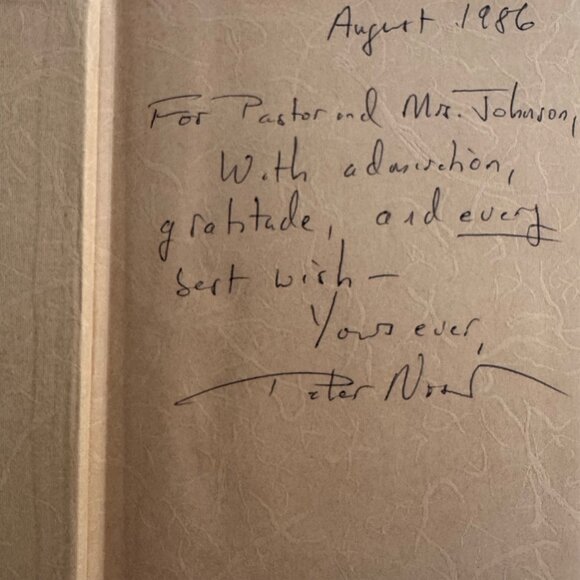 August 1986
For Pastor and Mrs. Johnson,
With admiration,
gratitude, and every
best wish—
Yours ever,
Peter